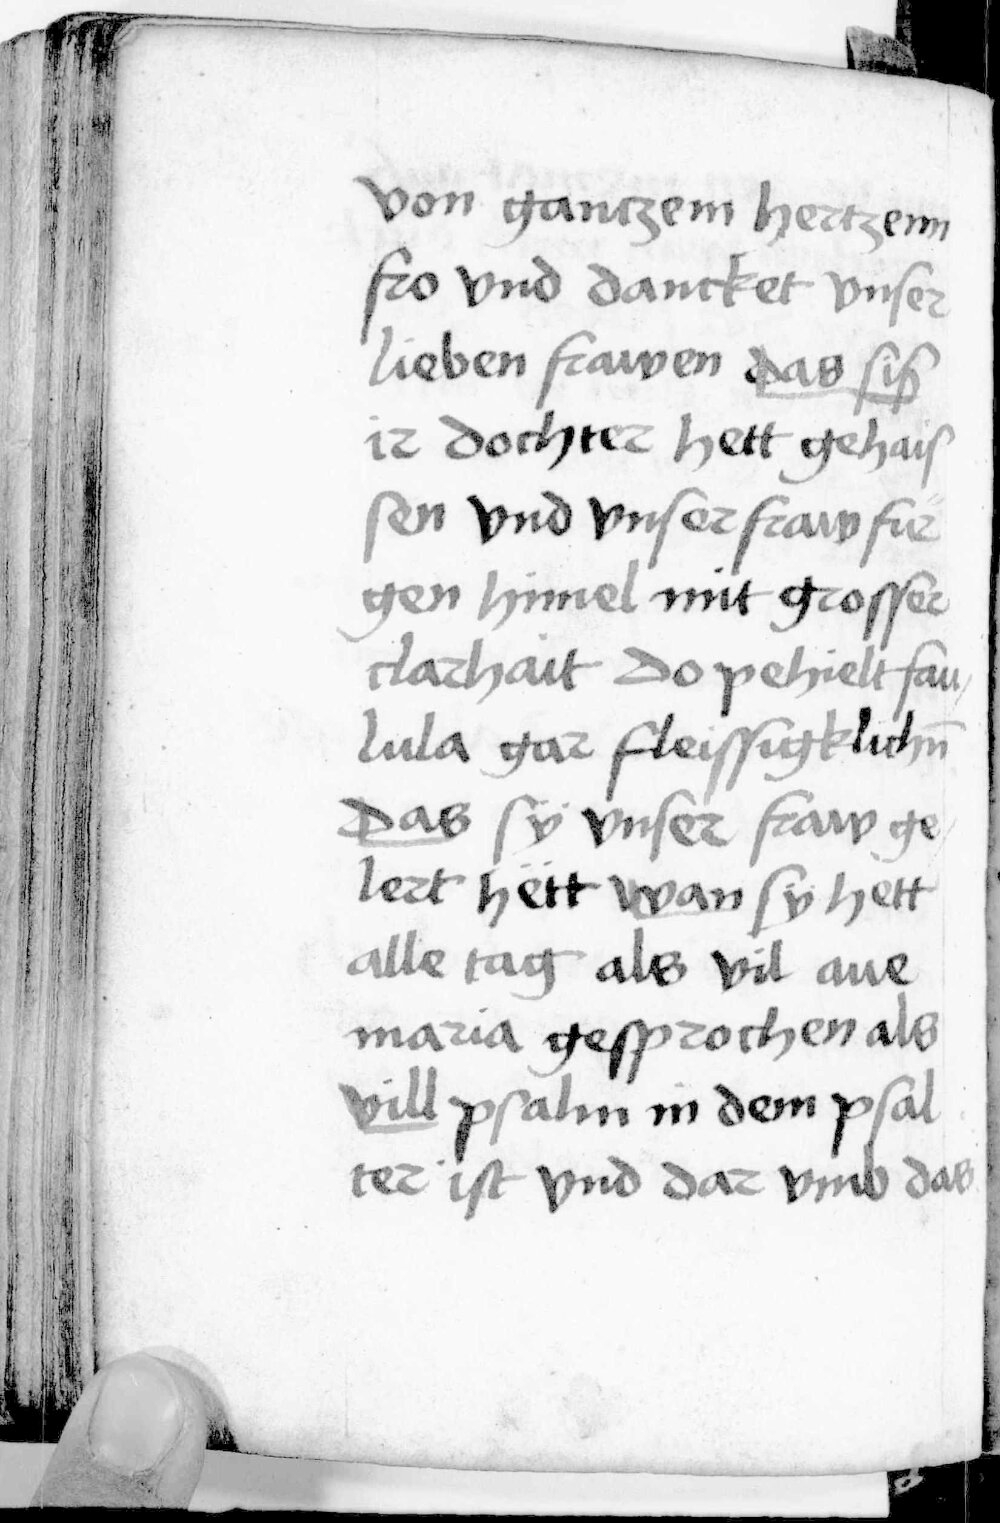 von gantzem hertzenn
fro vnd dancket vnser
lieben frawen das siß
ir dochter hett gehais
sen vnd vnser fraw fur
gen himel mit grosser
clarhait do pehielt fau/
lula gar fleissigklichn̄
das sÿ vnser fraw ge/
lert hëtt wan sÿ hett
alle tag als vil aue
maria gesprochen als
vill psalm in dem psal
ter ist vnd dar vmb das